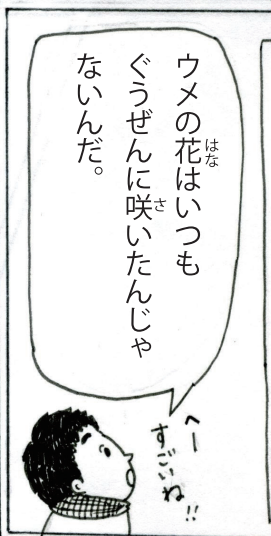 ウメの花はいつも
ぐうぜんに咲いたんじゃ
ないんだ。
はな
さ
へー
すごいね!!